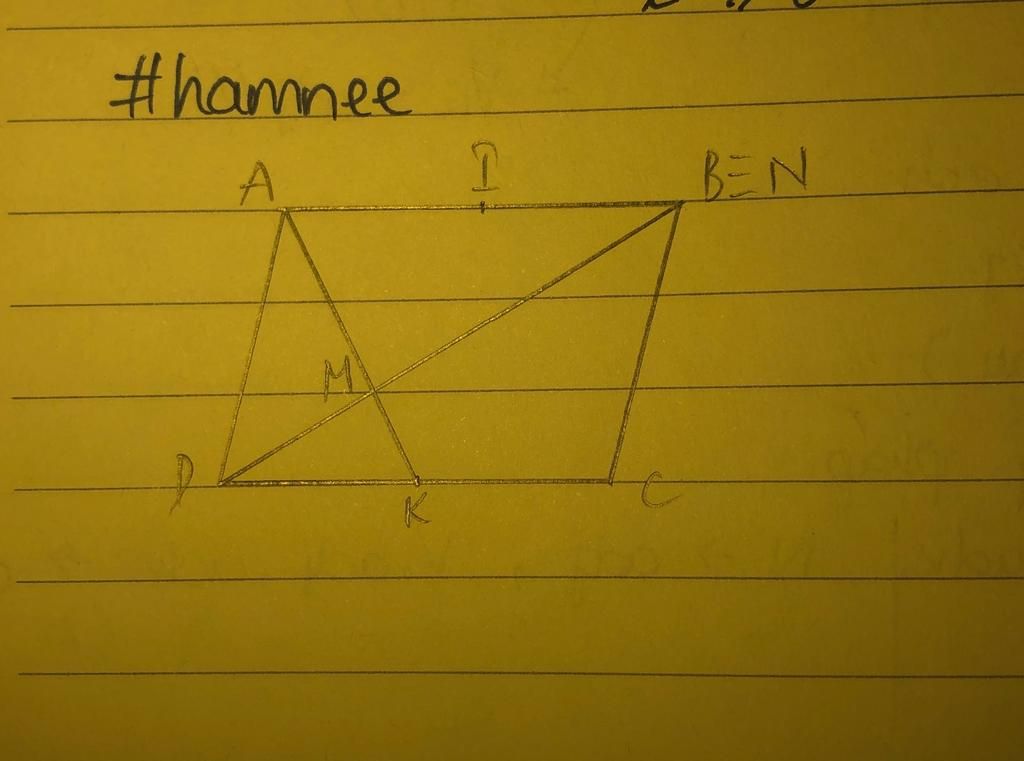 #hamnee
A I B≡N
M
D K C